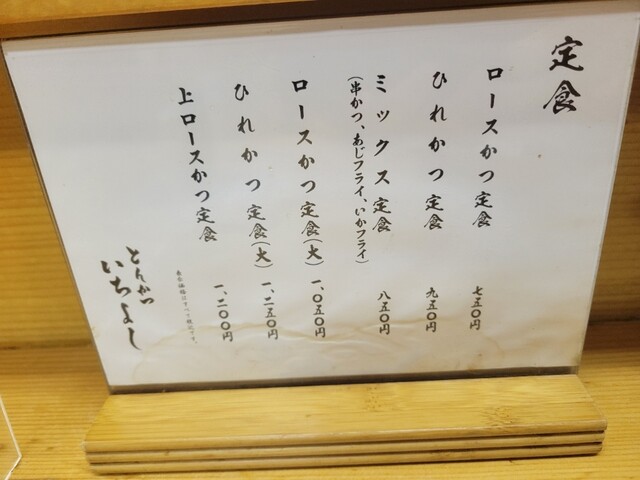 定食
ロースかつ定食 七五〇円
ひれかつ定食 九五〇円
ミックス定食 八五〇円
(串かつ、あじフライ、いかフライ)
ロースかつ定食(大) 一、〇五〇円
ひれかつ定食(大) 一、二五〇円
上ロースかつ定食 一、二〇〇円
とんかつ
いちよし